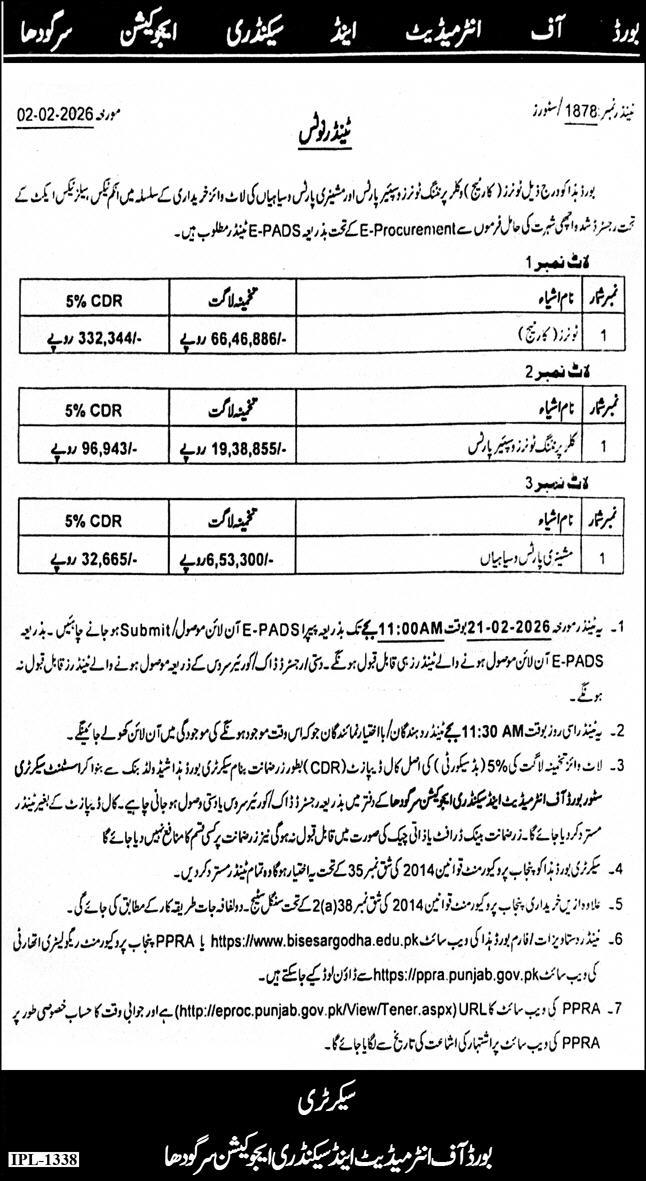 بورڈ آف انٹرمیڈیٹ اینڈ سیکنڈری ایجوکیشن سرگودھا
ٹینڈر نمبر: 1878/سٹورز
مورخہ 02-02-2026
ٹینڈر نوٹس
بورڈ ہذا کو درج ذیل ٹونرز (کارٹیج) و کلر پرنٹنگ ٹونرز و سپئیر پارٹس اور مشینری پارٹس و سیاہیاں کی لاٹ وائز خریداری کے سلسلہ میں انکم ٹیکس، سیلز ٹیکس ایکٹ کے
تحت رجسٹرڈ شدہ اچھی شہرت کی حامل فرموں سے E-Procurement کے تحت بذریعہ E-PADS ٹینڈر مطلوب ہیں۔
لاٹ نمبر 1
نمبر شمار نام اشیاء تخمینہ لاگت 5% CDR
1 ٹونرز (کارٹیج) 66,46,886/- روپے 332,344/- روپے
لاٹ نمبر 2
نمبر شمار نام اشیاء تخمینہ لاگت 5% CDR
1 کلر پرنٹنگ ٹونرز و سپئیر پارٹس 19,38,855/- روپے 96,943/- روپے
لاٹ نمبر 3
نمبر شمار نام اشیاء تخمینہ لاگت 5% CDR
1 مشینری پارٹس و سیاہیاں 6,53,300/- روپے 32,665/- روپے
1۔ یہ ٹینڈر مورخہ 21-02-2026 بوقت 11:00AM بجے تک بذریعہ پیپرا E-PADS آن لائن موصول/Submit ہو جانے چاہئیں۔ بذریعہ
E-PADS آن لائن موصول ہونے والے ٹینڈرز ہی قابل قبول ہونگے۔ دستی/رجسٹرڈ ڈاک/کورئیر سروس کے ذریعہ موصول ہونے والے ٹینڈرز قابل قبول نہ
ہونگے۔
2۔ یہ ٹینڈر اسی روز بوقت 11:30 AM بجے ٹینڈر دہندگان/بااختیار نمائندگان جو کہ اس وقت موجود ہونگے کی موجودگی میں آن لائن کھولے جائینگے۔
3۔ لاٹ وائز تخمینہ لاگت کی 5% (بڈ سیکورٹی) کی اصل کال ڈیپازٹ (CDR) بطور زر ضمانت بنام سیکرٹری بورڈ ہذا شیڈولڈ بنک سے بنوا کر اسسٹنٹ سیکرٹری
سٹور بورڈ آف انٹرمیڈیٹ اینڈ سیکنڈری ایجوکیشن سرگودھا کے دفتر میں بذریعہ رجسٹرڈ ڈاک/کورئیر سروس یا دستی وصول ہو جانی چاہیے۔ کال ڈیپازٹ کے بغیر ٹینڈر
مسترد کر دیا جائے گا۔ زر ضمانت بینک ڈرافٹ یا ذاتی چیک کی صورت میں قابل قبول نہ ہوگی نیز زر ضمانت پر کسی قسم کا منافع نہیں دیا جائے گا
4۔ سیکرٹری بورڈ ہذا کو پنجاب پروکیورمنٹ قوانین 2014 کی شق نمبر 35 کے تحت یہ اختیار ہوگا وہ تمام ٹینڈر مسترد کر دیں۔
5۔ علاوہ ازیں خریداری پنجاب پروکیورمنٹ قوانین 2014 کی شق نمبر 38(a)2 کے تحت سنگل سٹیج۔ دو لفافہ جات طریقہ کار کے مطابق کی جائے گی۔
6۔ ٹینڈر دستاویزات/فارم بورڈ ہذا کی ویب سائٹ https://www.bisesargodha.edu.pk یا PPRA پنجاب پروکیورمنٹ ریگولیٹری اتھارٹی
کی ویب سائٹ https://ppra.punjab.gov.pk سے ڈاؤن لوڈ کیے جا سکتے ہیں۔
7۔ PPRA کی ویب سائٹ کا URL (http://eproc.punjab.gov.pk/View/Tener.aspx) ہے اور جوابی وقت کا حساب خصوصی طور پر
PPRA کی ویب سائٹ پر اشتہار کی اشاعت کی تاریخ سے لگایا جائے گا۔
سیکرٹری
بورڈ آف انٹرمیڈیٹ اینڈ سیکنڈری ایجوکیشن سرگودھا
IPL-1338